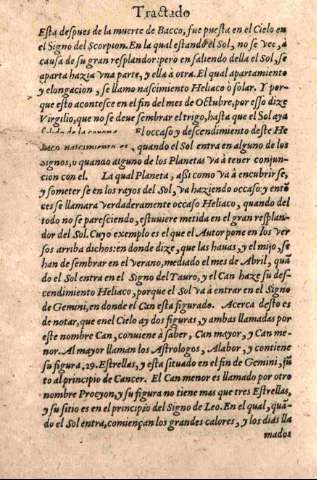 Tractado
Esta despues de la muerte de Bacco, fue puesta en el Cielo en
el Signo del Scorpion. En la qual estando el Sol, no se vee, à
causa de su gran resplandor: pero en saliendo della el Sol, se
aparta hazia vna parte, y ella à otra. El qual apartamiento
y elongacion, se llamo nascimiento Heliaco ò solar. Y por-
que esto acontesce en el fin del mes de Octubre, por esso dize
Virgilio, que no se deue sembrar el trigo, hasta que el Sol aya
El occaso y descendimiento deste He
quando el Sol entra en alguno de los
Signos, o quando alguno de los Planetas va à tener conjun-
ction con el. La qual Planeta, assi como và à encubrirse,
y someterse en los rayos del Sol, va haziendo occaso: y entō
ces se llamara verdaderamente occaso Heliaco, quando del
todo no se paresciendo, estuuiere metida en el gran resplan-
dor del Sol. Cuyo exemplo es el que el Autor pone en los ver
sos arriba dichos: en donde dize, que las hauas, y el mijo, se
han de sembrar en el verano, mediado el mes de Abril, quā
do el Sol entra en el Signo del Tauro, y el Can haze su des-
cendimiento Heliaco, porque el Sol va à entrar en el Signo
de Gemini, en donde el Can està figurado. Acerca desto es
de notar, que en el Cielo ay dos figuras, y ambas llamadas por
este nombre Can, conuiene à saber, Can mayor, y Can me-
nor. Al mayor llaman los Astrologos, Alabor, y contiene
su figura, 29. Estrellas, y esta situado en el fin de Gemini, jū
to al principio de Cancer. El Can menor es llamado por otro
nombre Procyon, y su figura no tiene mas que tres Estrellas,
y su sitio es en el principio del Signo de Leo. En el qual, quā-
do el Sol entra, comiençan los grandes calores, y los dias lla
mados